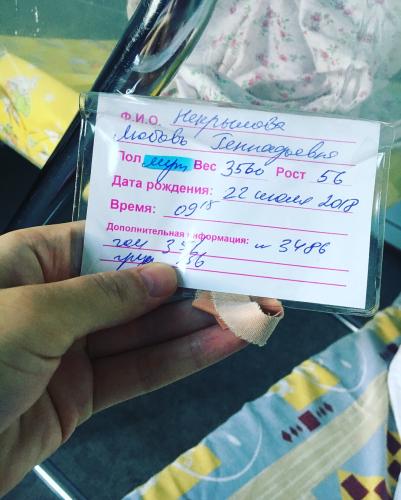 Ф.И.О. Некрылова
Любовь Геннадьевна
Пол муж Вес 3560 Рост 56
Дата рождения: 22 июля 2018
Время: 09 15
Дополнительная информация: 3486
гол 35
груд 36